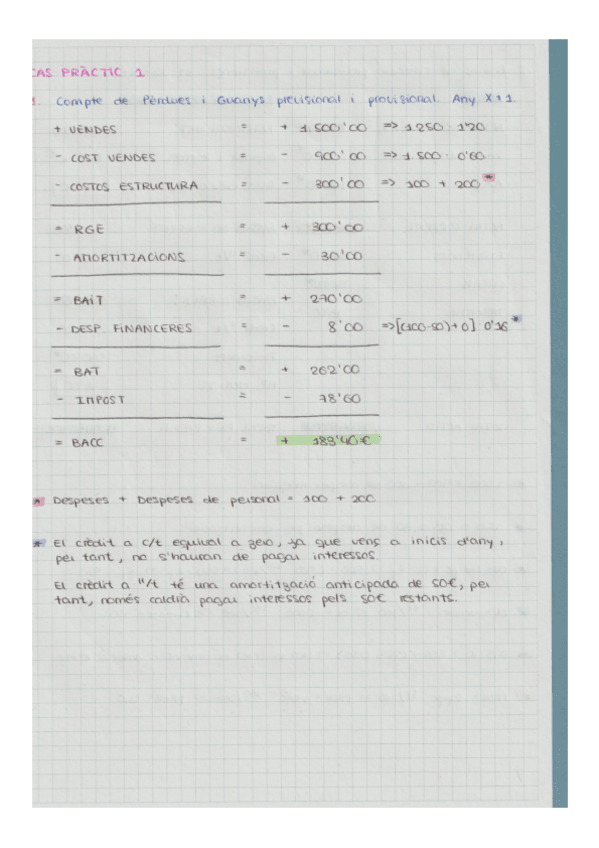 CAS PRÀCTIC 1
1. Compte de Pèrdues i Guanys previsional i provisional. Any X+1.
+ VENDES = + 1.500'00 => 1.250 · 1'20
- COST VENDES = - 900'00 => 1.500 · 0'60
- COSTOS ESTRUCTURA = - 300'00 => 100 + 200 *
= RGE = + 300'00
- AMORTITZACIONS = - 30'00
= BAiT = + 270'00
- DESP. FiNANCERES = - 8'00 => [(100-50)+0] 0'16 *
= BAT = + 262'00
- IMPOST = - 78'60
= BACC = + 183'40€
* Despeses + Despeses de personal = 100 + 200
* El crèdit a c/t equival a zero, ja que vens a inicis d'any,
per tant, no s'hauran de pagar interessos.
El crèdit a ll/t té una amortització anticipada de 50€, per
tant, només caldrà pagar interessos pels 50€ restants.